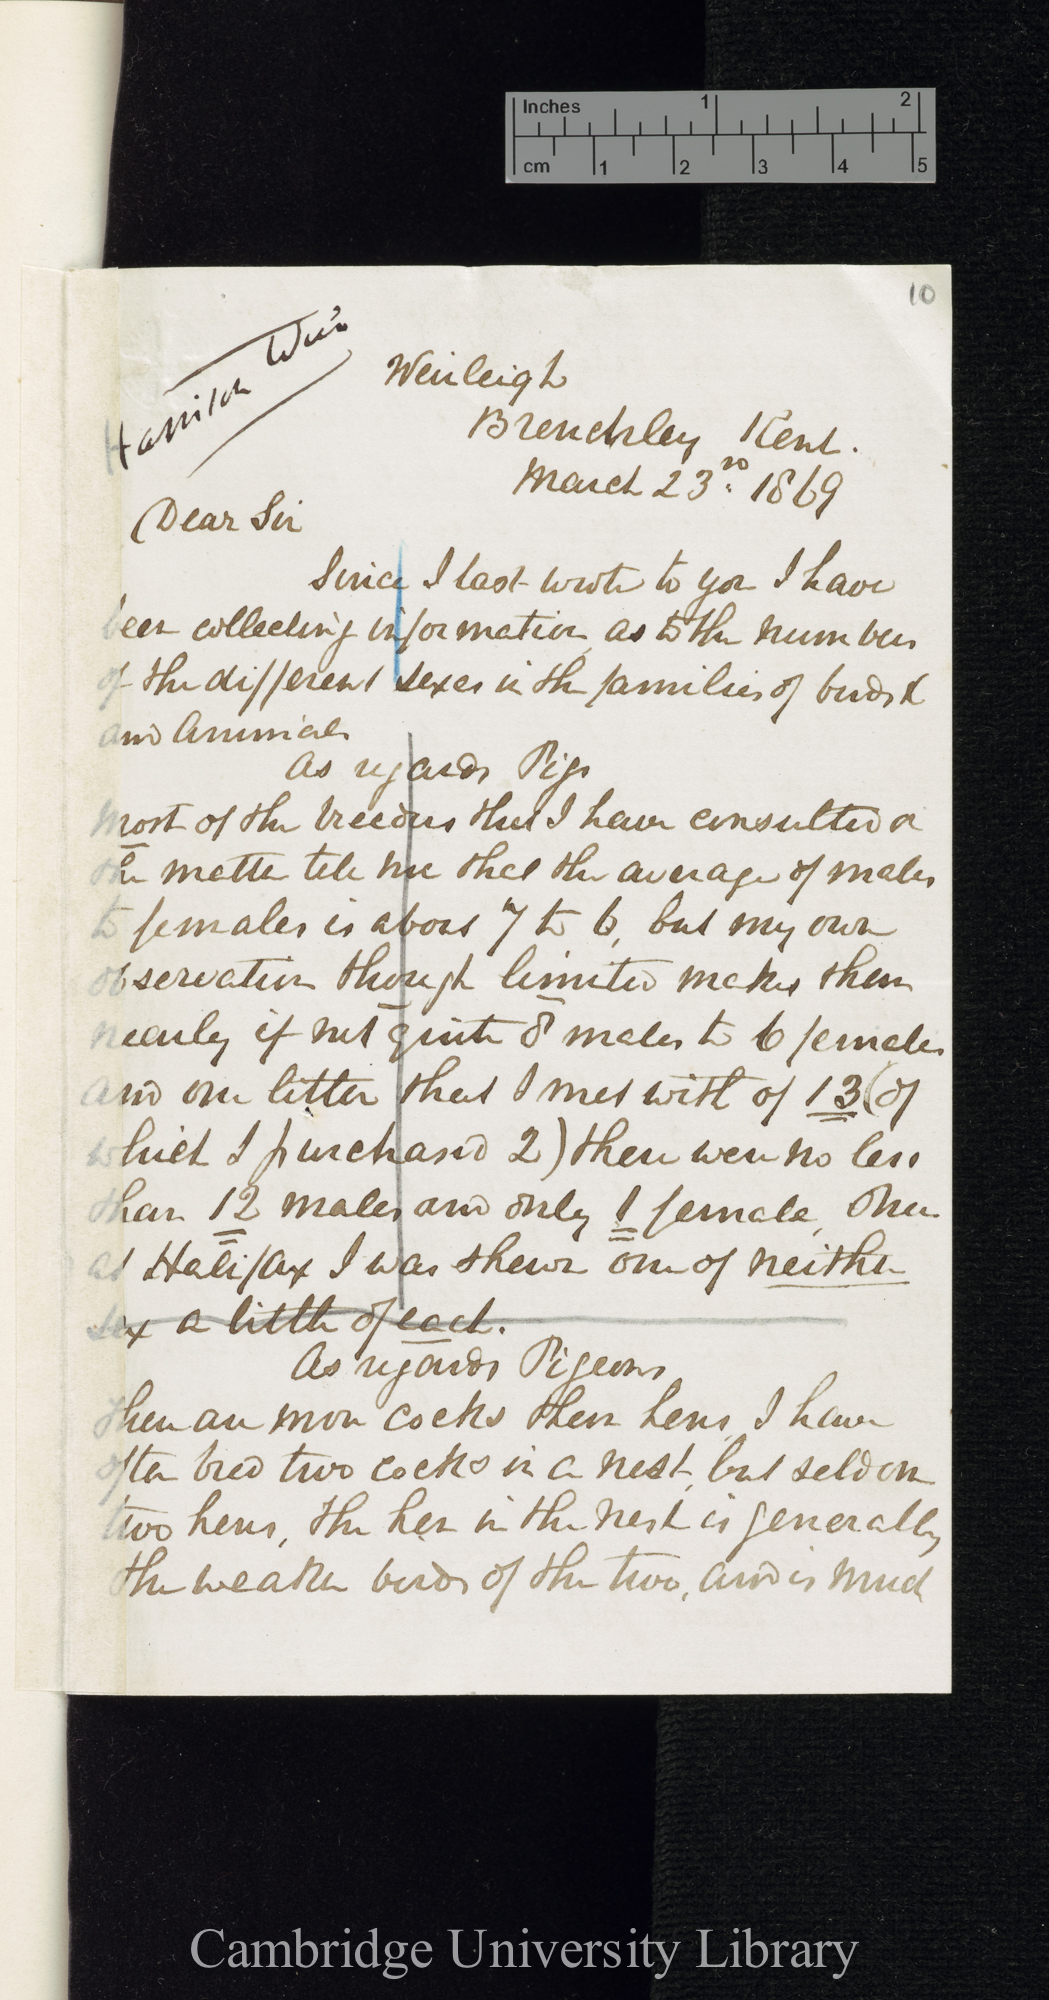 Inches 1 2
cm 1 2 3 4 5
10
Harrison Weir
Weirleigh
Brenchley Kent.
March 23rd. 1869
Dear Sir
Since I last wrote to you I have
been collecting information as to the numbers
of the different sexes in the families of birds &
and Animals
As regards Pigs
Most of the breeders that I have consulted on
the matter tell me that the average of males
to females is about 7 to 6, but my own
observation though limited makes them
nearly if not quite 8 males to 6 females
and one litter that I met with of 13 (of
which I purchased 2) there were no less
than 12 males and only 1 female, Once
at Halifax I was shewn one of neither
sex a little of each.
As regards Pigeons
There are more cocks than hens, I have
often bred two cocks in a nest, but seldom
two hens, the hen in the nest is generally
the weaker bird of the two, and is much
Cambridge University Library